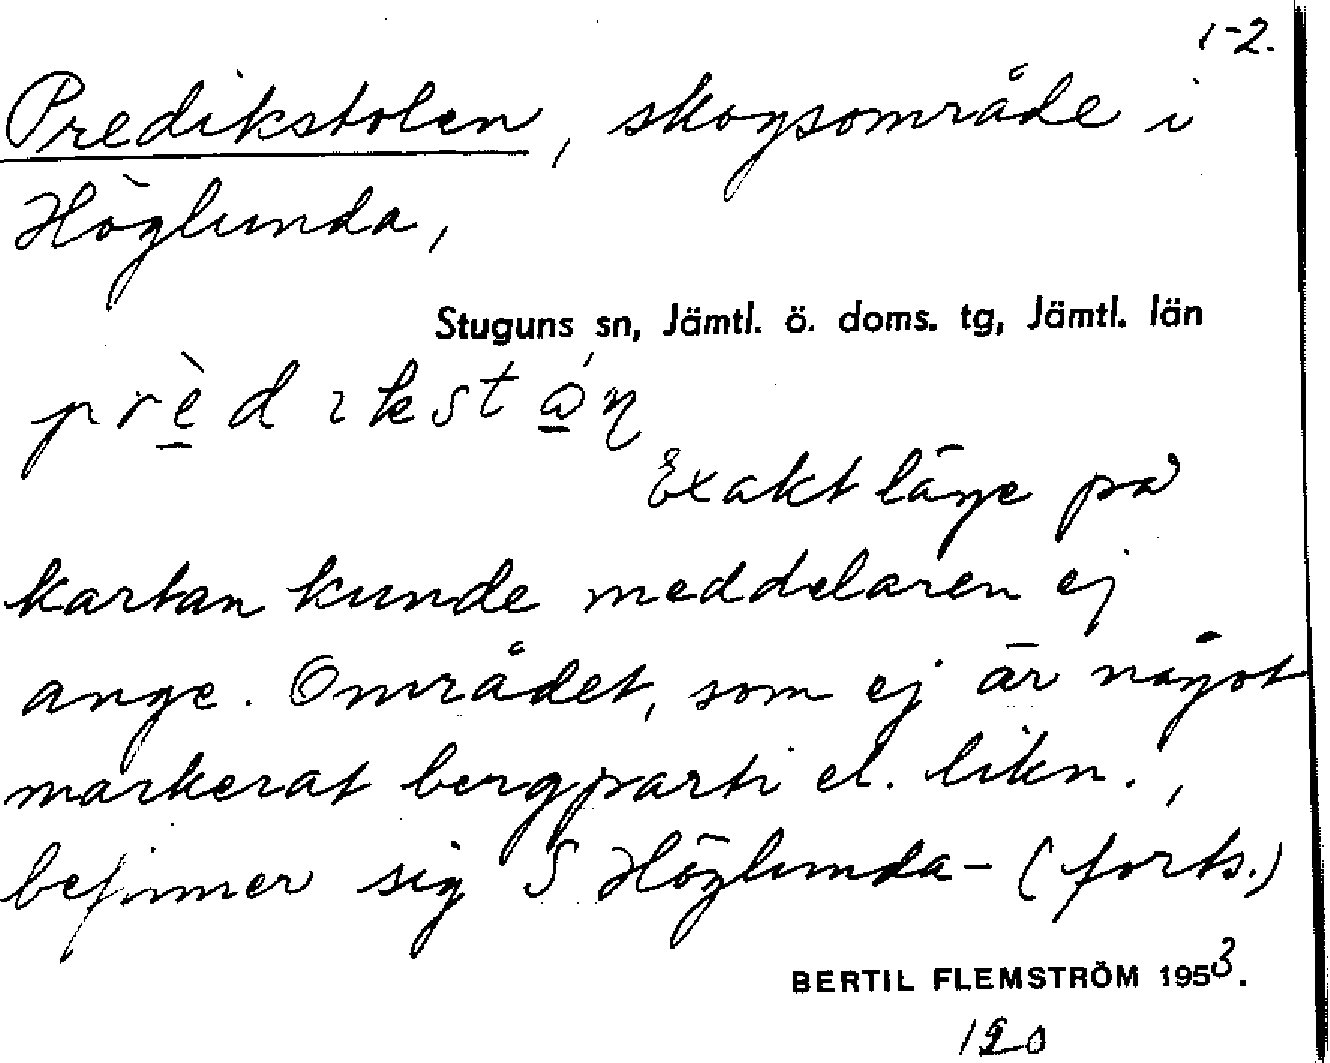 1-2.
Predikstolen, skogsområde i
Höglunda,
Stuguns sn, Jämtl. ö. doms. tg, Jämtl. län
Exakt läge på
kartan kunde meddelaren ej
ange. Området, som ej är något
markerat bergparti el. likn.,
befinner sig S Höglunda- (forts.)
BERTIL FLEMSTRÖM 1953.
120